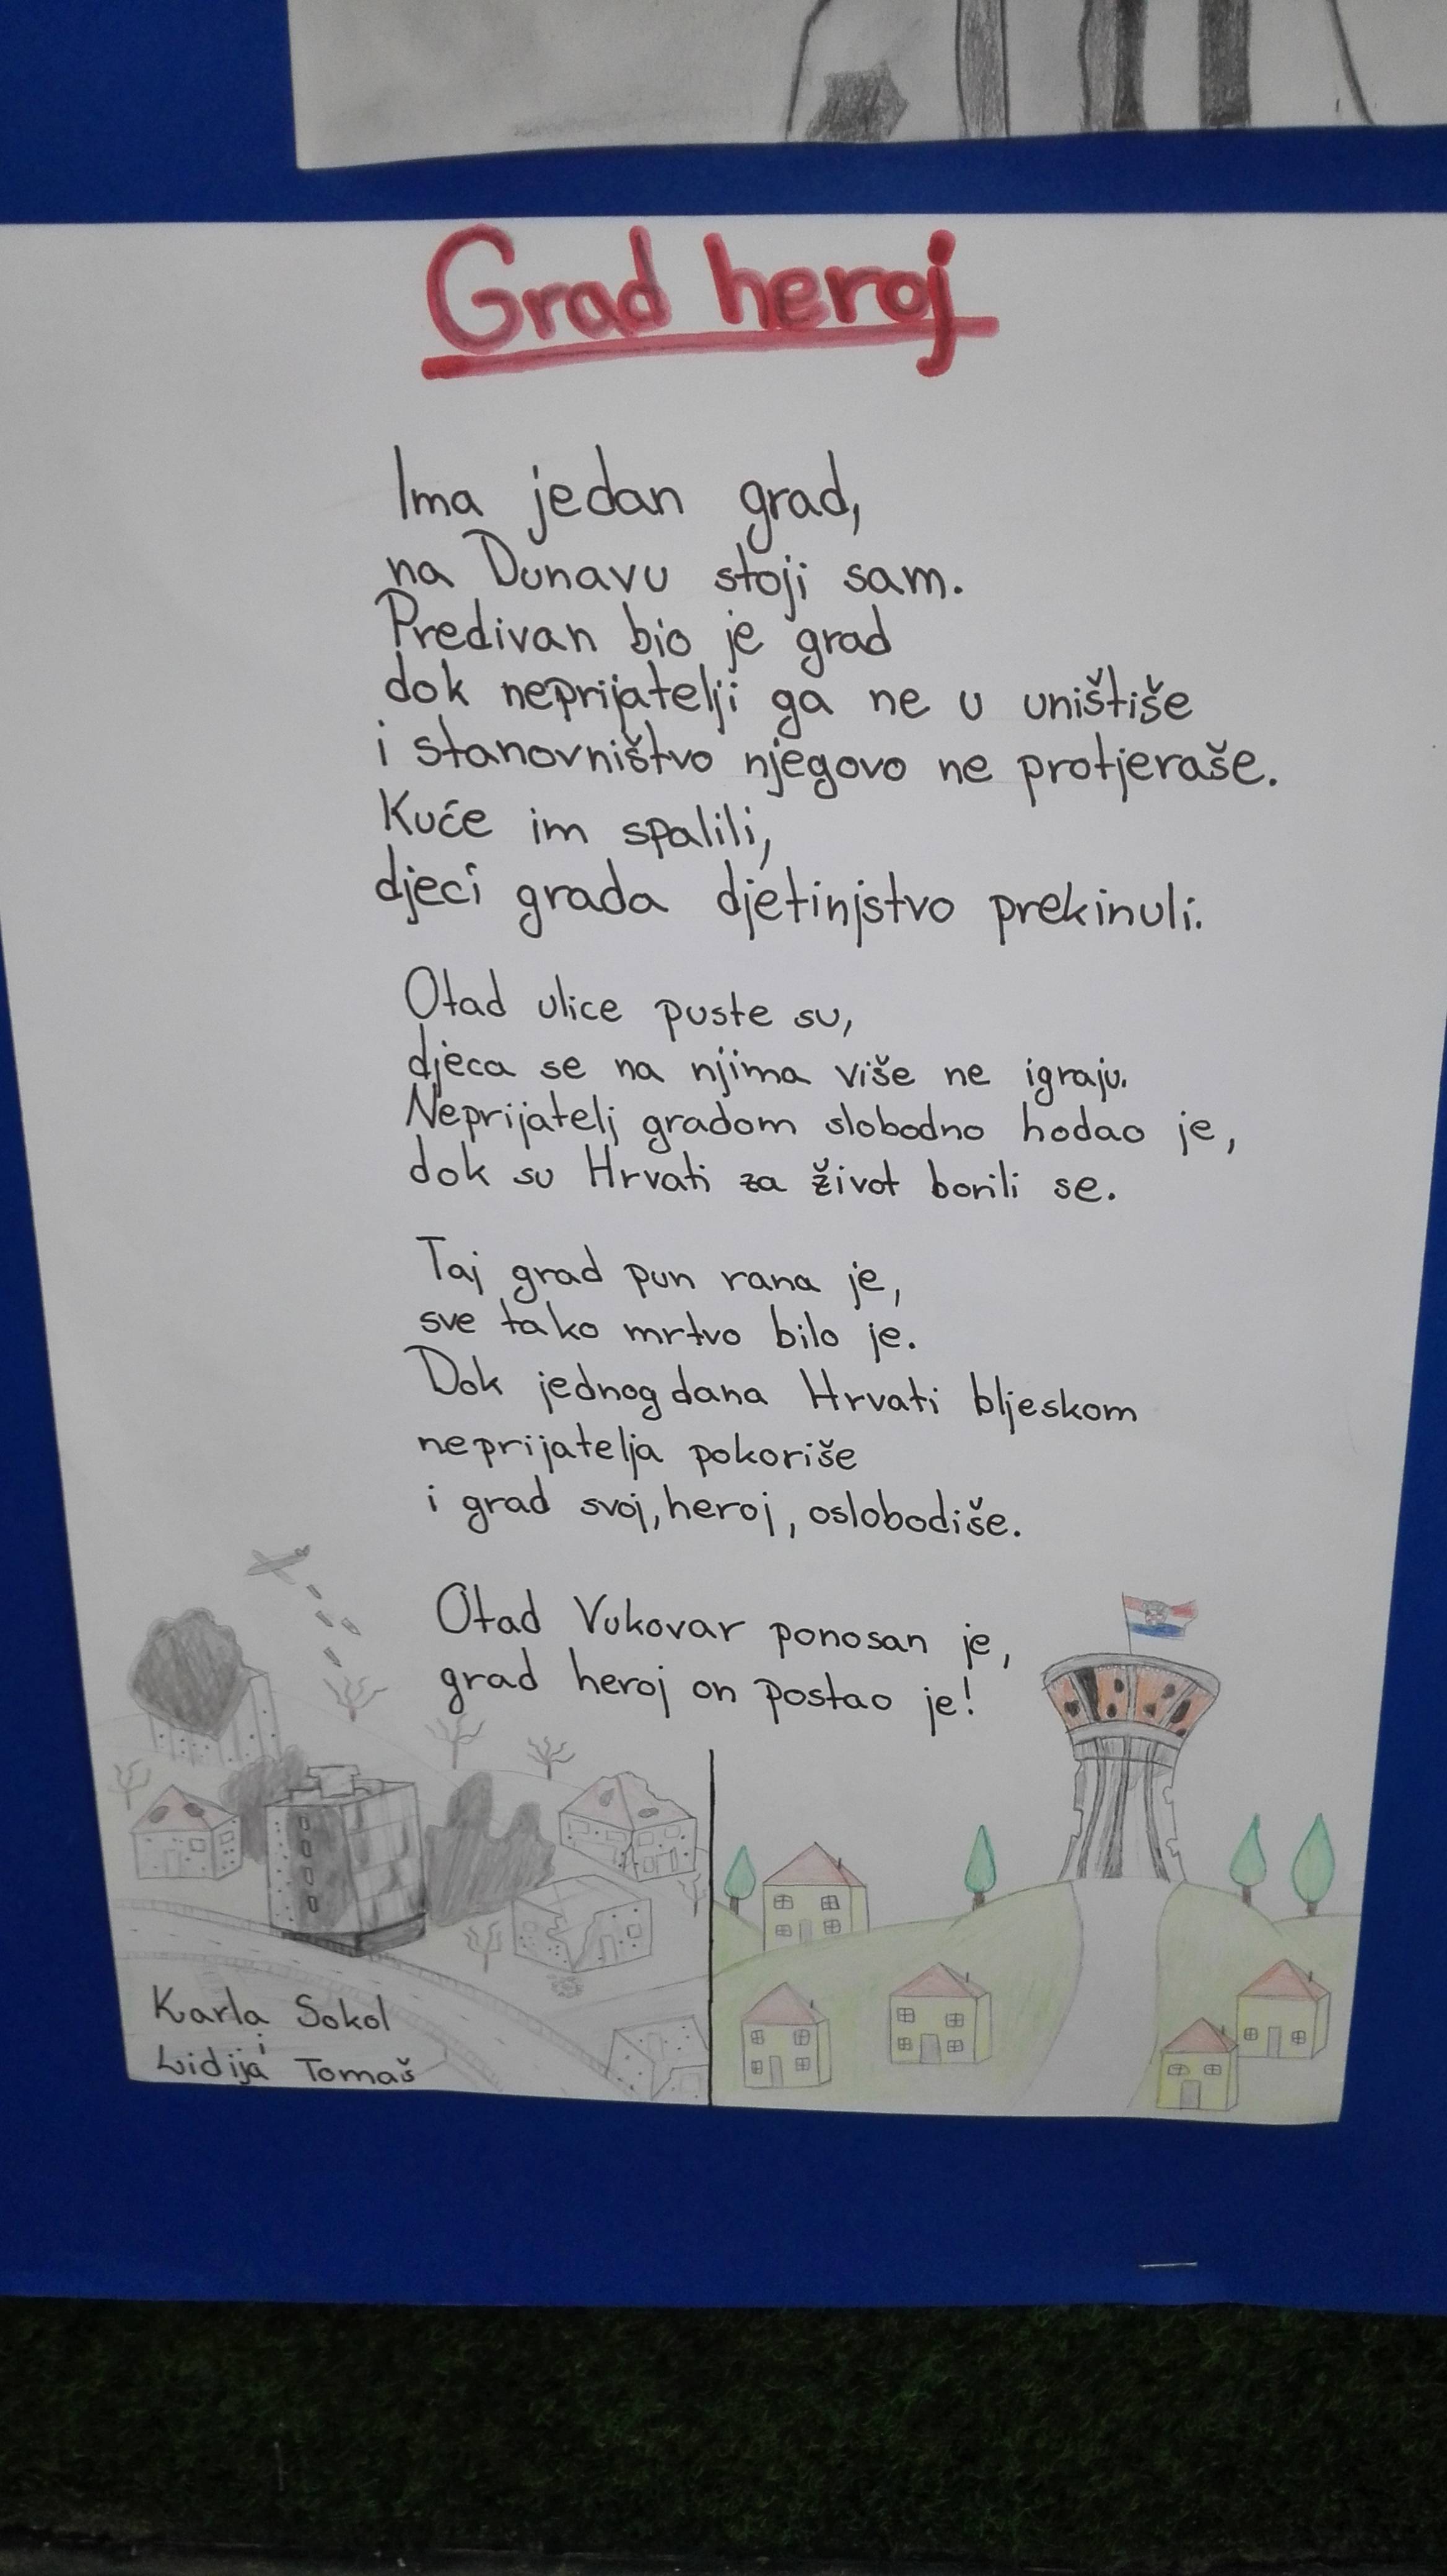 Grad heroj
Ima jedan grad,
na Dunavu stoji sam.
Predivan bio je grad
dok neprijatelji ga ne u uništiše
i stanovništvo njegovo ne protjeraše.
Kuće im spalili,
djeci grada djetinjstvo prekinuli.
Otad ulice puste su,
djeca se na njima više ne igraju.
Neprijatelj gradom slobodno hodao je,
dok su Hrvati za život borili se.
Taj grad pun rana je,
sve tako mrtvo bilo je.
Dok jednog dana Hrvati bljeskom
neprijatelja pokoriše
i grad svoj, heroj, oslobodiše.
Otad Vukovar ponosan je,
grad heroj on postao je!
Karla Sokol
i
Lidija Tomaš